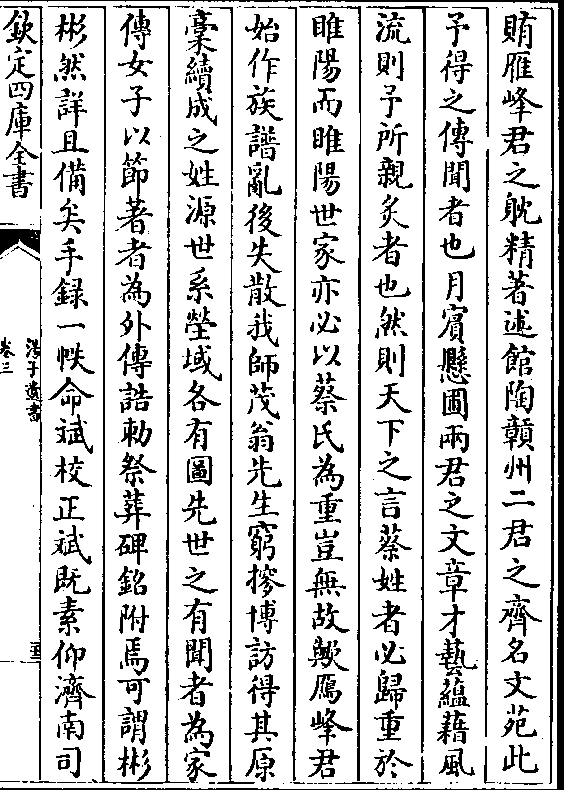 賄雁峰君之躭精著述館陶贛州二君之齊名文苑此
予得之傳聞者也月濱懸圃兩君之文章才藝蘊藉風
流則予所親炙者也然則天下之言蔡姓者必歸重於
睢陽而睢陽世家亦必以蔡氏為重豈無故歟鴈峰君
始作族譜亂後失散我師茂翁先生窮搜博訪得其原
稾續成之姓源世系塋域各有圖先世之有聞者為家
傳女子以節著者為外傳誥勅祭葬碑銘附焉可謂彬
彬然詳且備矣手録一帙命斌校正斌既素仰濟南司
欽定四庫全書
湯子遺書
卷三